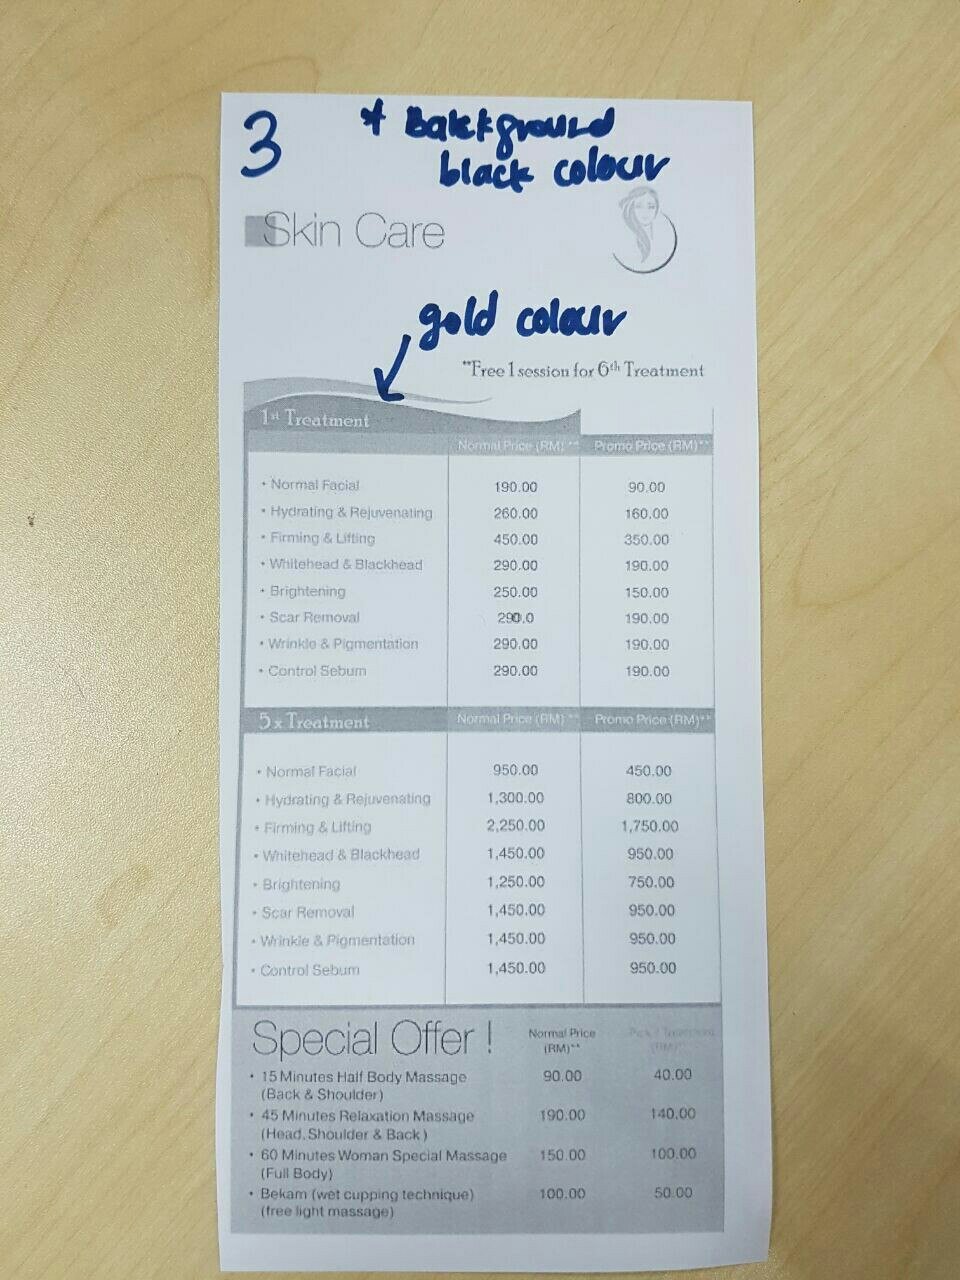 3
* Bakckground
black colour
Skin Care
gold colour
**Free 1 session for 6th Treatment
1st Treatment
Normal Price (RM)** Promo Price (RM)**
• Normal Facial 190.00 90.00
• Hydrating & Rejuvenating 260.00 160.00
• Firming & Lifting 450.00 350.00
• Whitehead & Blackhead 290.00 190.00
• Brightening 250.00 150.00
• Scar Removal 290.0 190.00
• Wrinkle & Pigmentation 290.00 190.00
• Control Sebum 290.00 190.00
5x Treatment Normal Price (RM)** Promo Price (RM)**
• Normal Facial 950.00 450.00
• Hydrating & Rejuvenating 1,300.00 800.00
• Firming & Lifting 2,250.00 1,750.00
• Whitehead & Blackhead 1,450.00 950.00
• Brightening 1,250.00 750.00
• Scar Removal 1,450.00 950.00
• Wrinkle & Pigmentation 1,450.00 950.00
• Control Sebum 1,450.00 950.00
Special Offer ! Normal Price
(RM)** (RM)**
• 15 Minutes Half Body Massage 90.00 40.00
(Back & Shoulder)
• 45 Minutes Relaxation Massage 190.00 140.00
(Head, Shoulder & Back)
• 60 Minutes Woman Special Massage 150.00 100.00
(Full Body)
• Bekam (wet cupping technique) 100.00 50.00
(free light massage)